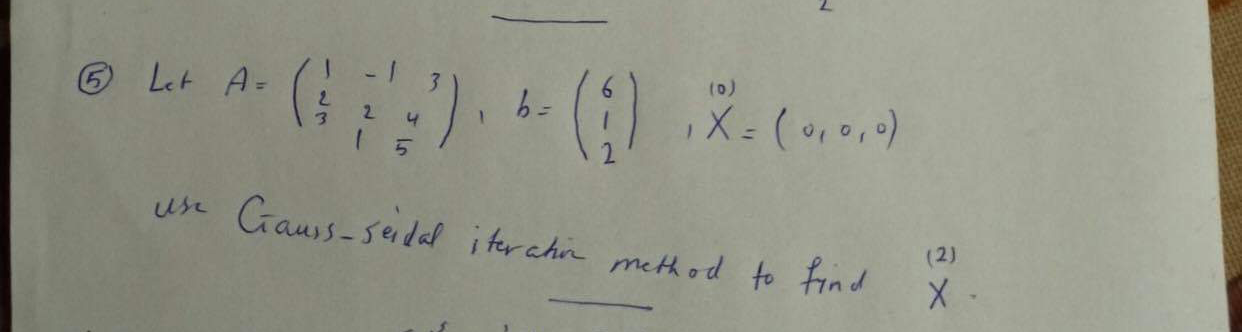 2
⑤ Let A = ( 1 -1 3
2 2 4
3 1 5 ), b = ( 6
1
2 ), X^(0) = ( 0, 0, 0)
use Gauss-seidal iteration method to find X^(2).